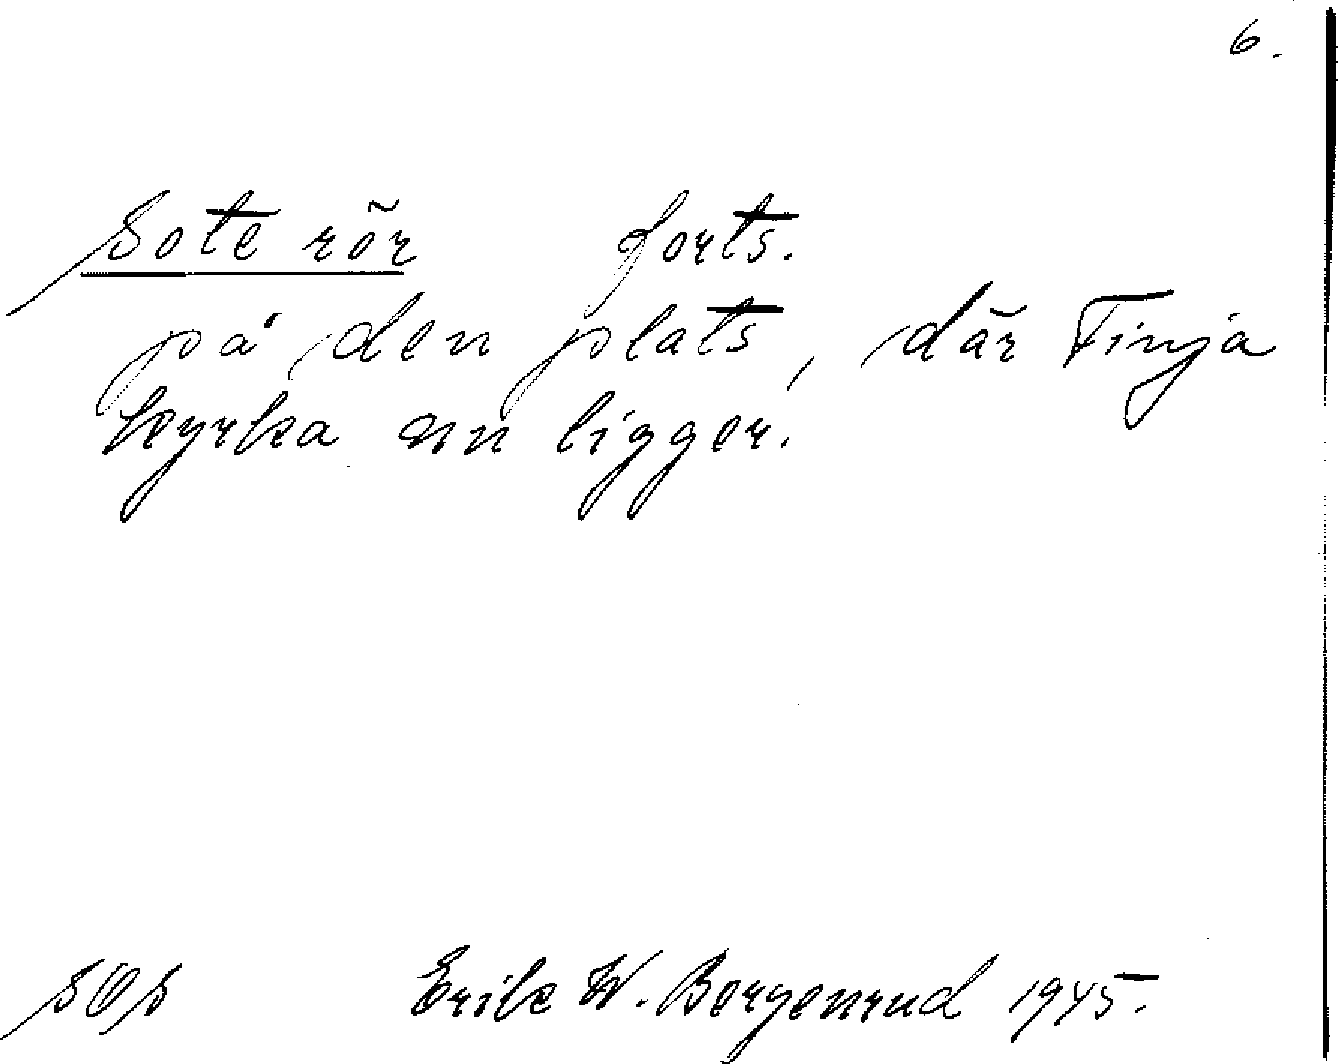 6.
Sote rör forts.
på den plats, där Finja
kyrka nu ligger.
Erik W. Borgenrud 1945.